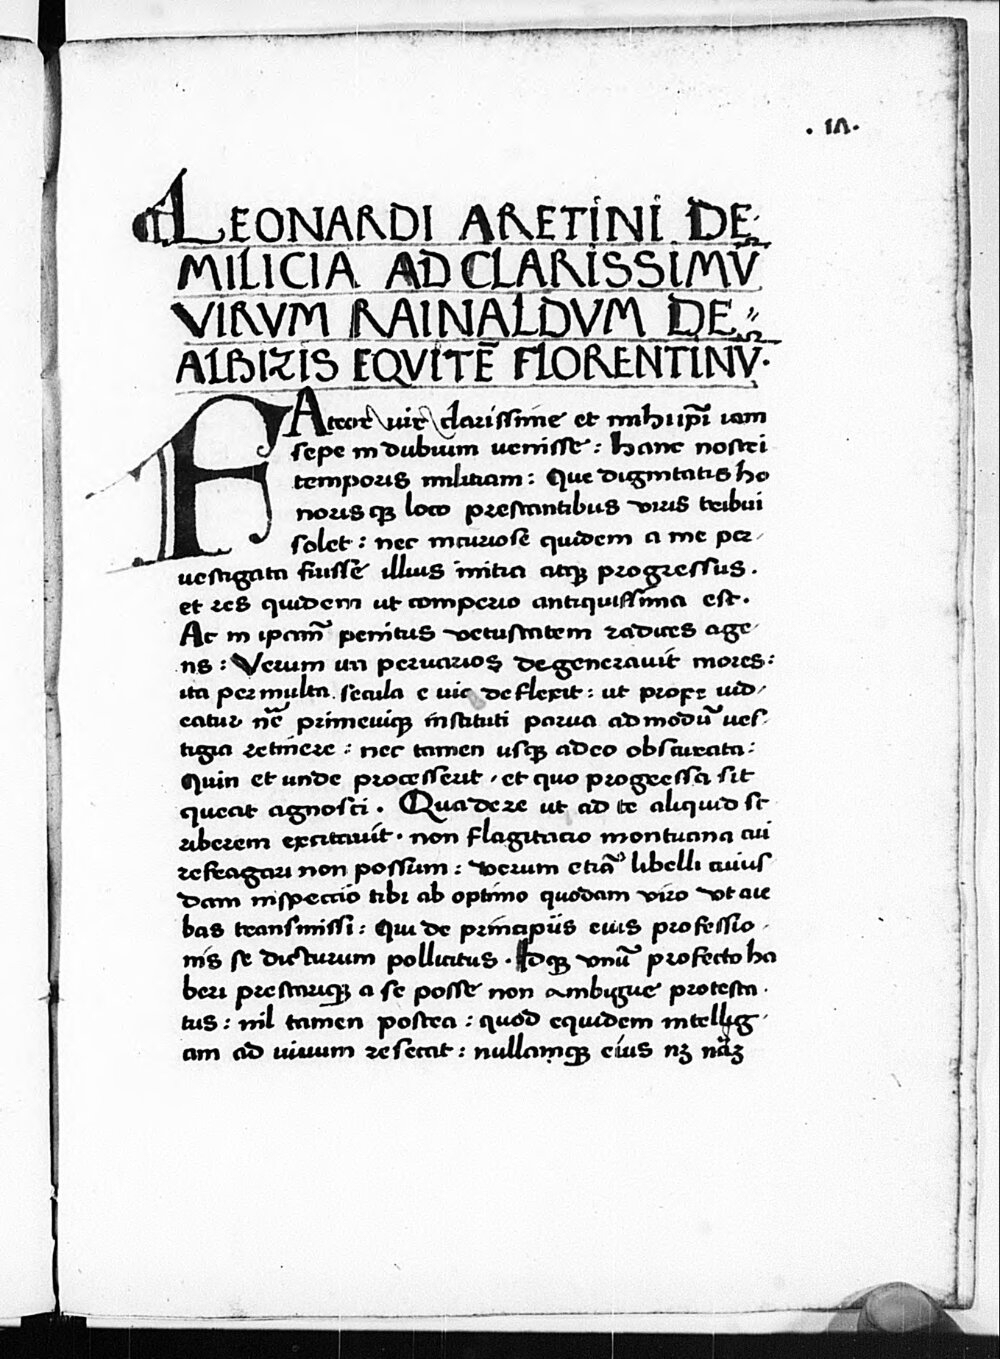 LEONARDI ARETINI DE
MILICIA AD CLARISSIMŪ
VIRVM RAINALDVM DE
ALBIZIS EQVITĒ FLORENTINŪ.
FAteor vir clarissime et mihi ip̄i iam
sepe in dubium uenisse : hanc nostri
temporis militiam : Que dignitatis ho
noris qꝫ loco prestantibus viris tribui
solet : nec incuriose quidem a me per-
uestigata fuisse illius initia atqꝫ progressus .
et res quidem ut comperio antiquissima est .
Ac in ipam̄ penitus vetustatem radices age-
ns : Verum uti peruarios degenerauit mores :
ita per multa secula e uia deflexit : ut prope uid-
eatur nē primeuiqꝫ instituti parua admodū ues-
tigia retinere : nec tamen usqꝫ adeo obscurata :
Quin et unde processerit , et quo progressa sit
queat agnosci . Qua de re ut ad te aliquid sc
riberem excitauit . non flagitacio montuana cui
refragari non possum : verum etiā libelli cuius
dam inspeccio tibi ab optimo quodam viro vt aie
bas transmissi : Qui de principiis eius professio-
nis se dicturum pollicitus . Idqꝫ vnū profecto ha
beri prestariqꝫ a se posse non ambigue protesta-
tus : nil tamen postea : quod equidem intellig-
am ad uiuum resecat : nullamqꝫ eius